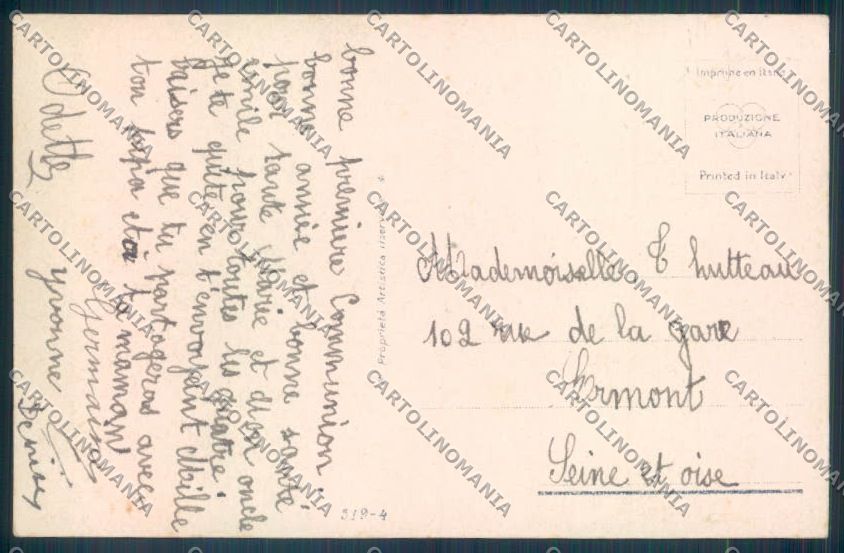 bonne première Communion
bonne année et bonne santé
pour tante Marie et mon oncle
emile pour toutes les quatre
Je te quitte en t'envoyant Mille
baisers que tu partageras avec
ton papa et a ta maman
Germaine
Yvonne
Odette
Denise
Proprietà Artistica riserv
319-4
Imprimé en Italie
PRODUZIONE
ITALIANA
Printed in Italy
Mademoiselle T hutteau
102 rue de la gare
Ermont
Seine et oise
CARTOLINOMANIA